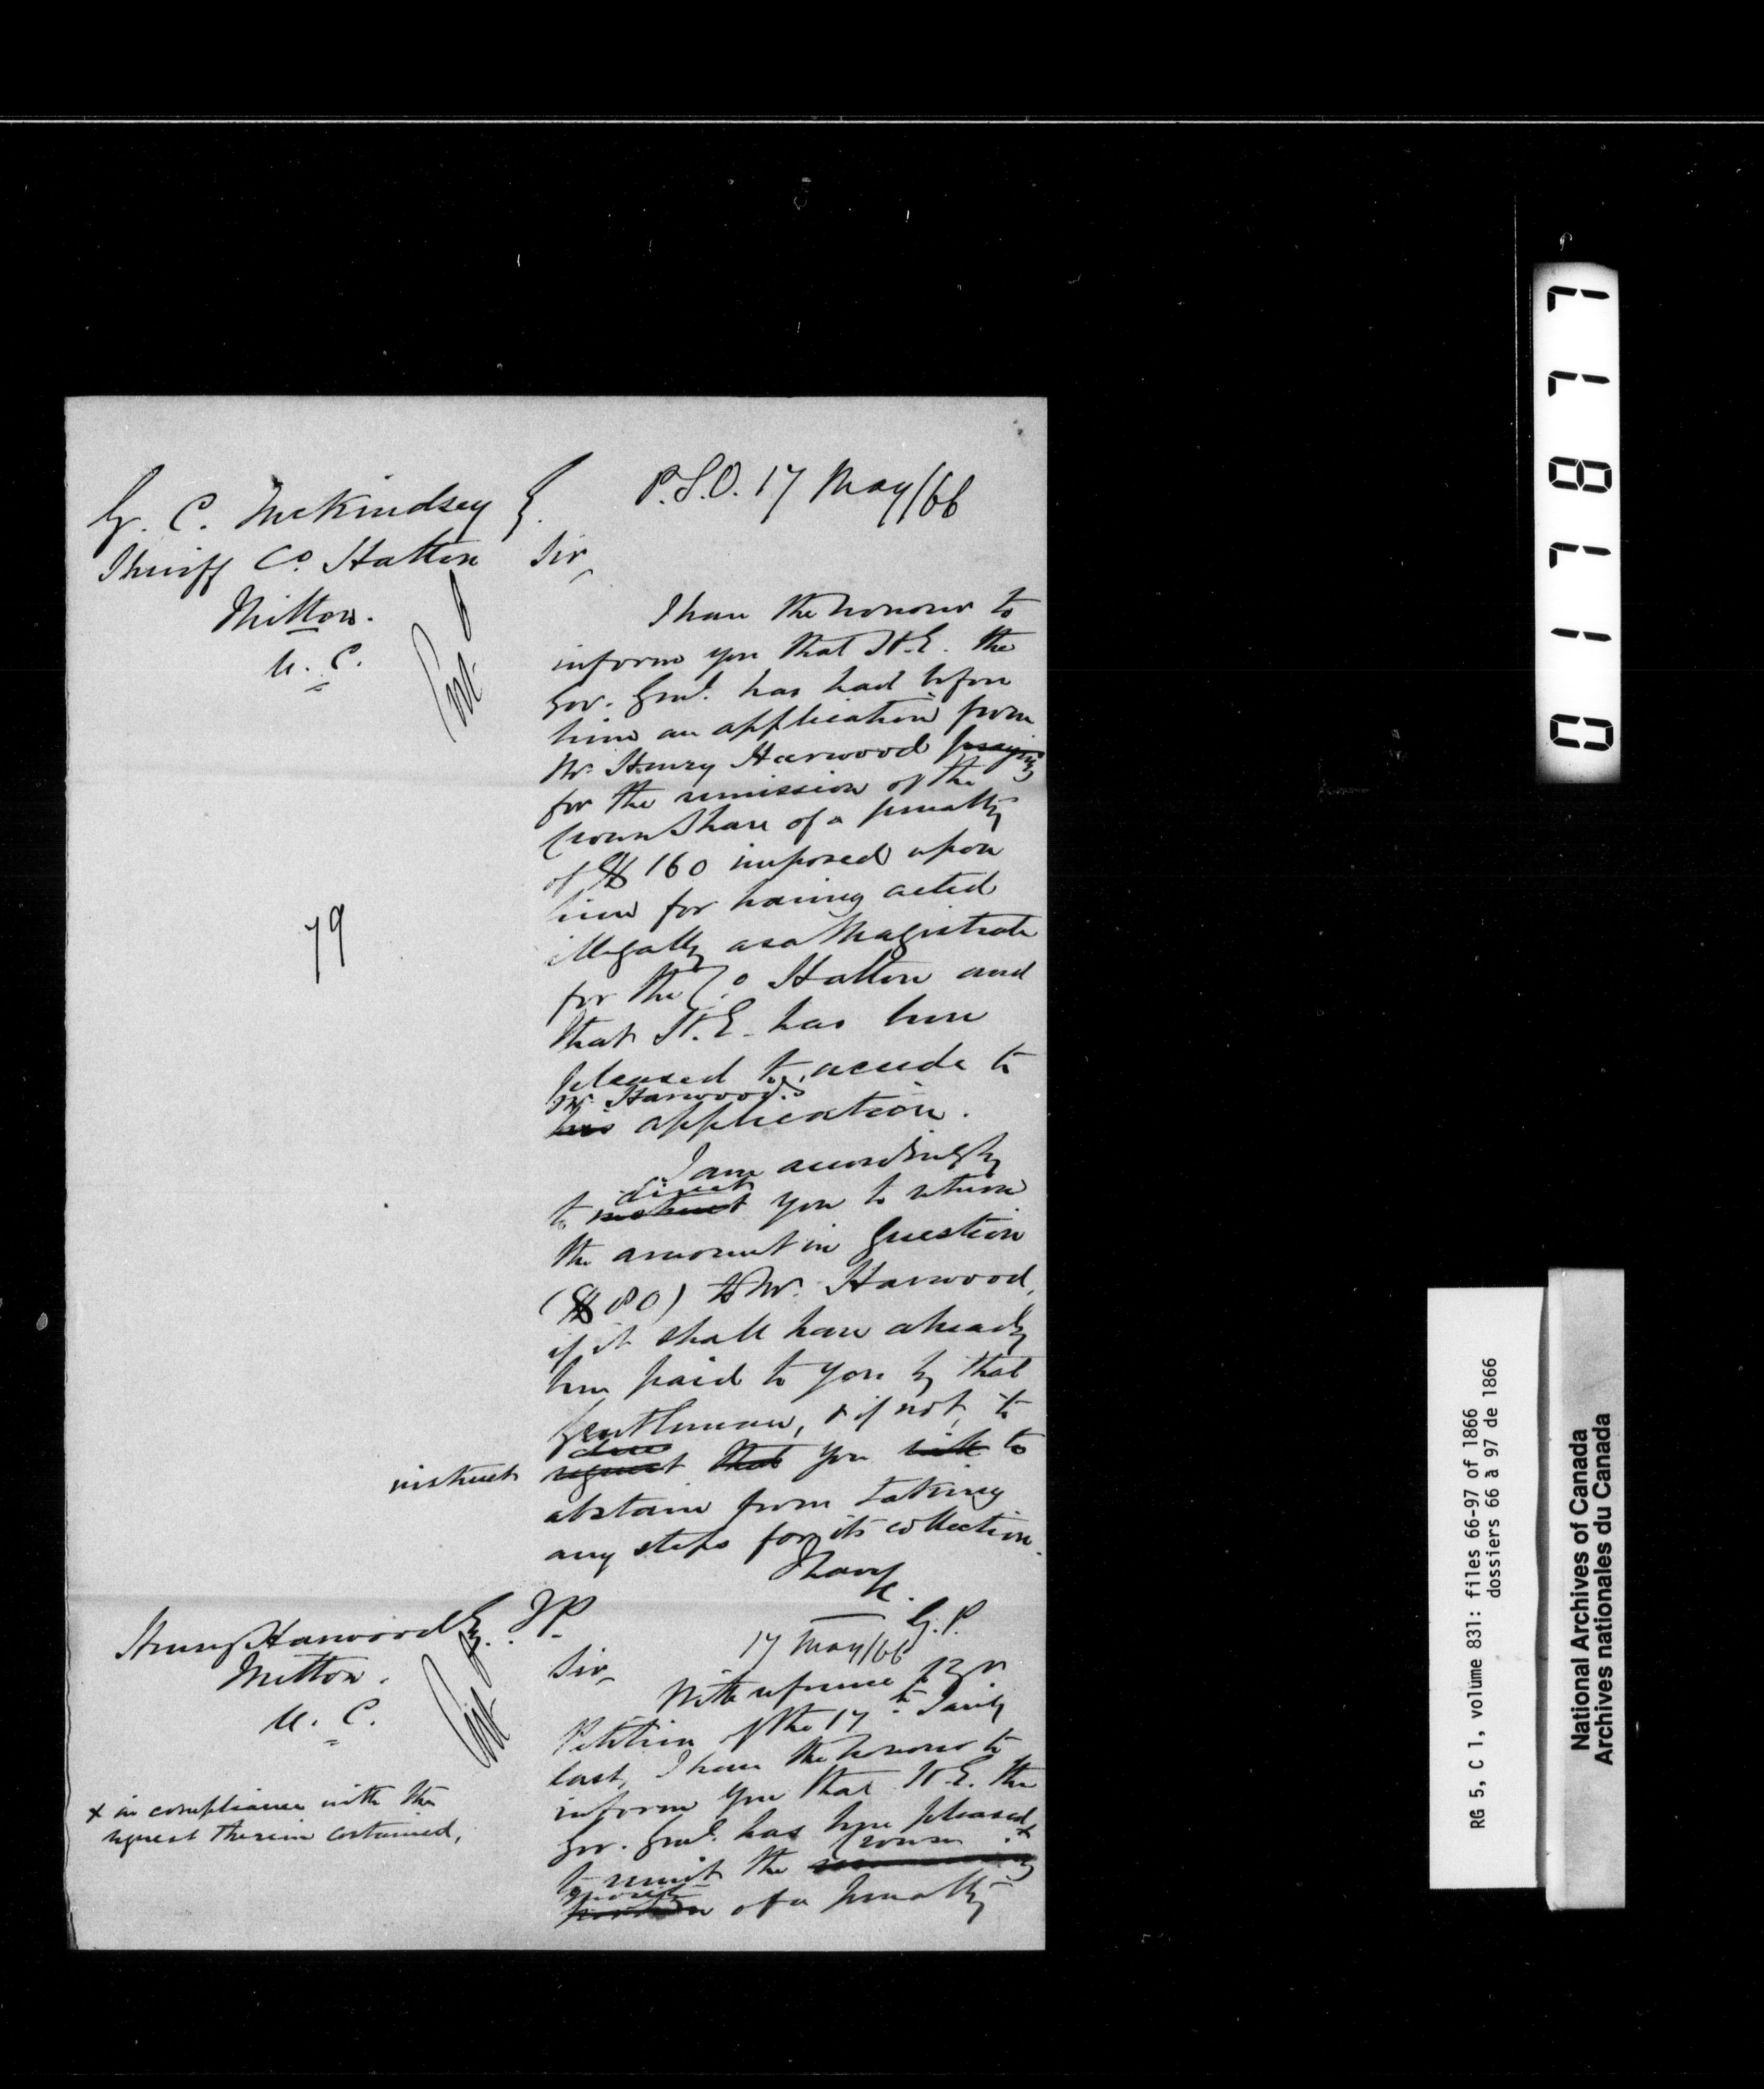 P.S.O. 17 May/66
G. C. McKindsey E.
Sheriff Co. Halton
Milton.
U. C.
Sir,
I have the honour to
inform you that H.E. the
Gov. Genl. has had before
him an application from
Mr. Henry Harwood praying
for the remission of the
Crown Share of a penalty
of $160 imposed upon
him for having acted
illegally as a Magistrate
for the Co. Halton and
that H.E. has been
pleased to accede to
Mr. Harwood's
his application.
79
I am accordingly
direct
to instruct you to return
the amount in question
($80) to Mr. Harwood,
if it shall have already
been paid to you by that
Gentleman, & if not, to
instruct request that you will to
abstain from taking
any steps for its collection.
I have
&c.
G.P.
Henry Harwood Esq. J.P.
Milton.
U. C.
17 May/66
Sir,
With reference to yr
Petition of the 17th Jany
last, I have the honour to
inform you that H.E. the
Gov. Genl. has been pleased x
Crown
to remit the
portion of a penalty
x in compliance with the
request therein contained,
017877
RG 5, C 1, volume 831: files 66-97 of 1866
dossiers 66 à 97 de 1866
National Archives of Canada
Archives nationales du Canada